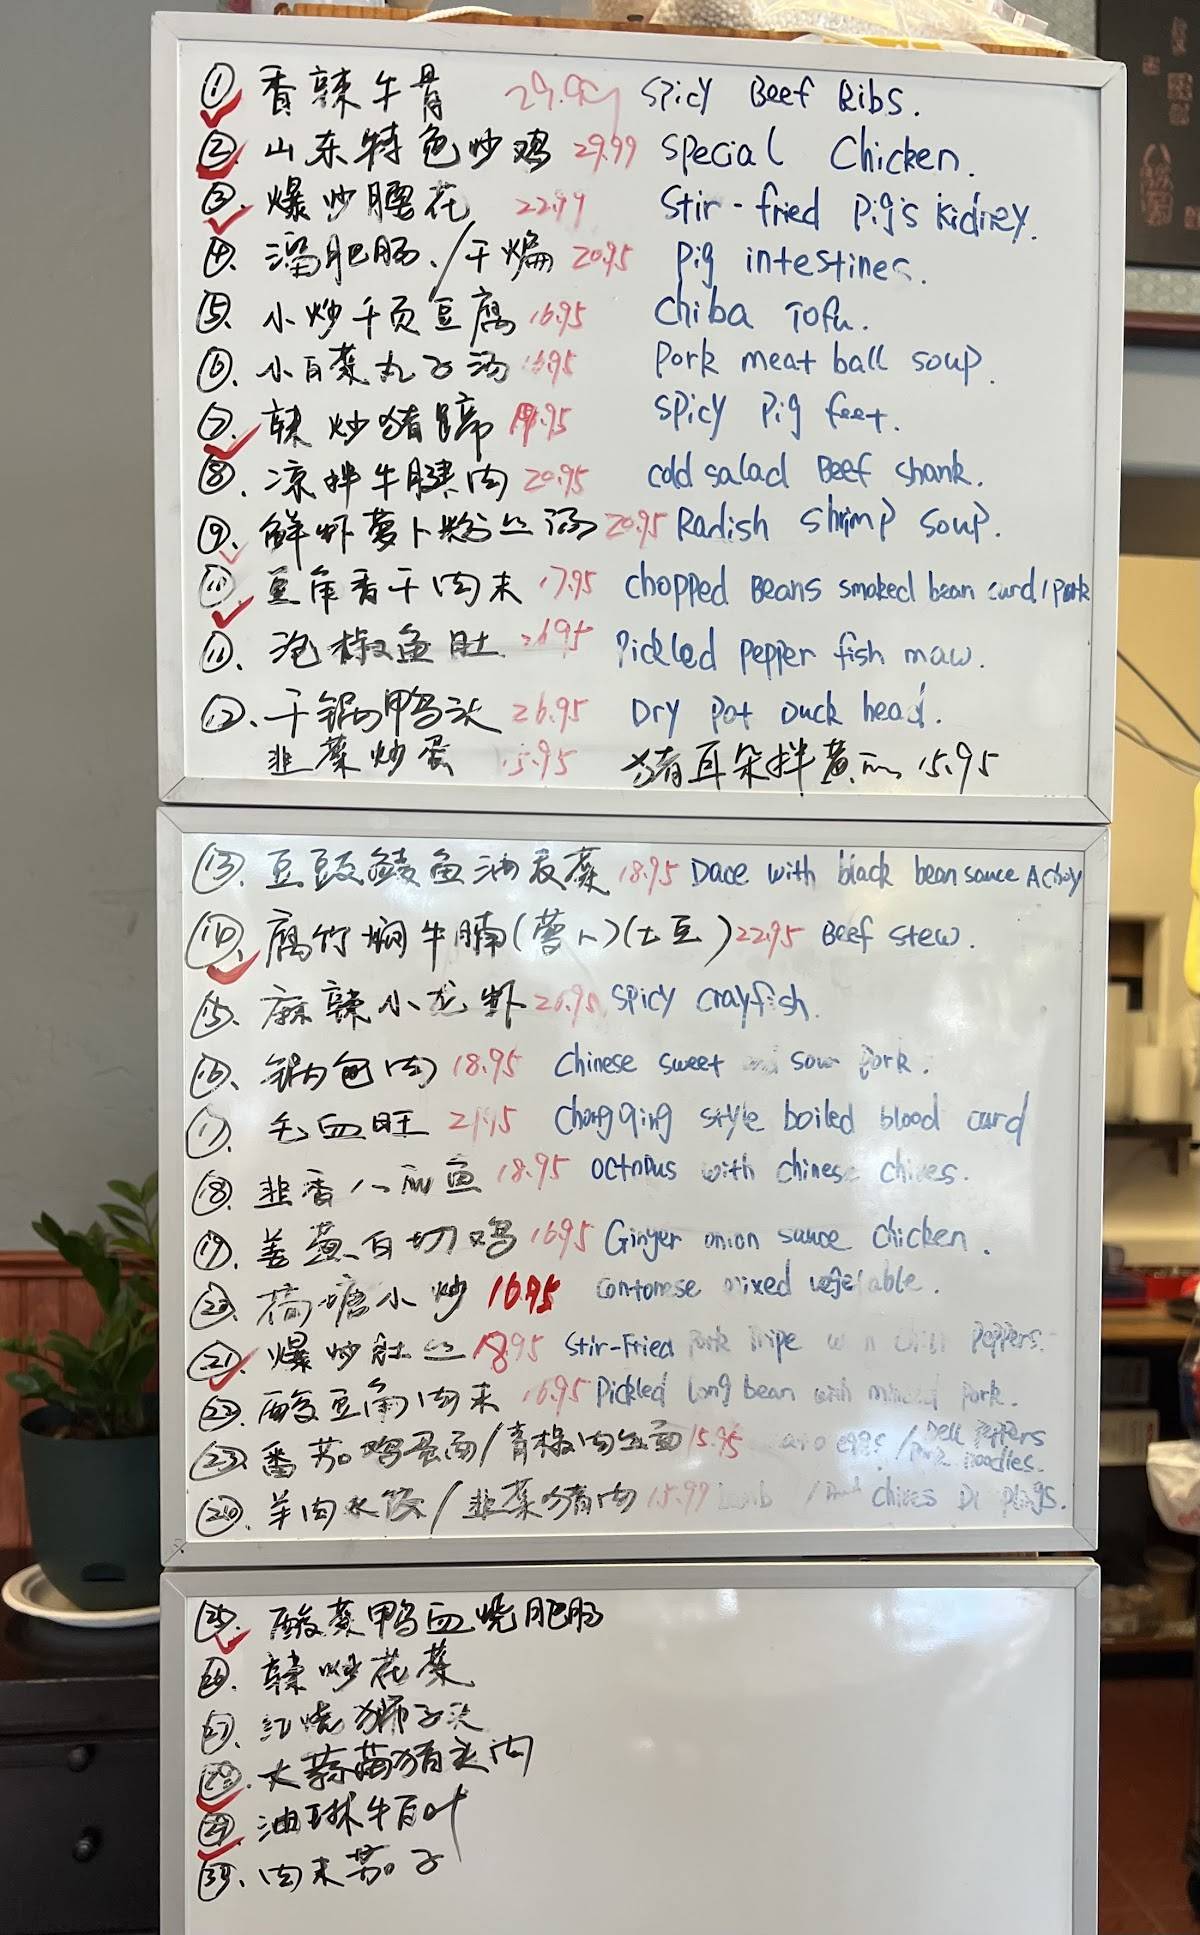 ① 香辣牛骨 29.99 Spicy Beef Ribs.
② 山东特色炒鸡 29.99 Special Chicken.
③. 爆炒腰花 22.99 Stir-fried Pig's kidney.
④. 溜肥肠./干煸 20.95 Pig intestines.
⑤. 小炒千页豆腐 16.95 Chiba Tofu.
⑥. 小白菜丸子汤 16.95 Pork meat ball soup.
⑦. 辣炒猪蹄 19.95 Spicy Pig feet.
⑧. 凉拌牛腱肉 20.95 cold salad Beef shank.
⑨. 鲜虾萝卜粉丝汤 20.95 Radish shrimp soup.
⑩. 豆角香干肉末 17.95 chopped Beans smoked bean curd/pork
⑪. 泡椒鱼肚 26.95 Pickled pepper fish maw.
⑫. 干锅鸭头 26.95 Dry Pot Duck head.
韭菜炒蛋 15.95 猪耳朵拌黄瓜 15.95
⑬. 豆豉鲮鱼油麦菜 18.95 Dace with black bean sauce A choy
⑭. 腐竹焖牛腩(萝卜)(土豆) 22.95 Beef stew.
⑮. 麻辣小龙虾 26.95 Spicy crayfish.
⑯. 锅包肉 18.95 Chinese sweet and sour pork.
⑰. 毛血旺 21.95 Chongqing style boiled blood curd
⑱. 韭香八爪鱼 18.95 Octopus with chinese chives.
⑲. 姜葱白切鸡 16.95 Ginger onion sauce chicken.
⑳. 荷塘小炒 16.95 Cantonese mixed vegetable.
㉑. 爆炒肚丝 18.95 Stir-Fried Pork Tripe with chili Peppers.
㉒. 酸豆角肉末 16.95 Pickled long bean with minced pork.
㉓. 番茄鸡蛋面/青椒肉丝面 15.95 eggs / Bell Peppers Pork noodles.
㉔. 羊肉水饺/韭菜猪肉 15.99 Lamb / Pork chives
㉕. 酸菜鸭血烧肥肠
㉖. 辣炒花菜
㉗. 红烧狮子头
㉘. 大蒜苗猪头肉
㉙. 油淋牛百叶
㉚. 肉末茄子